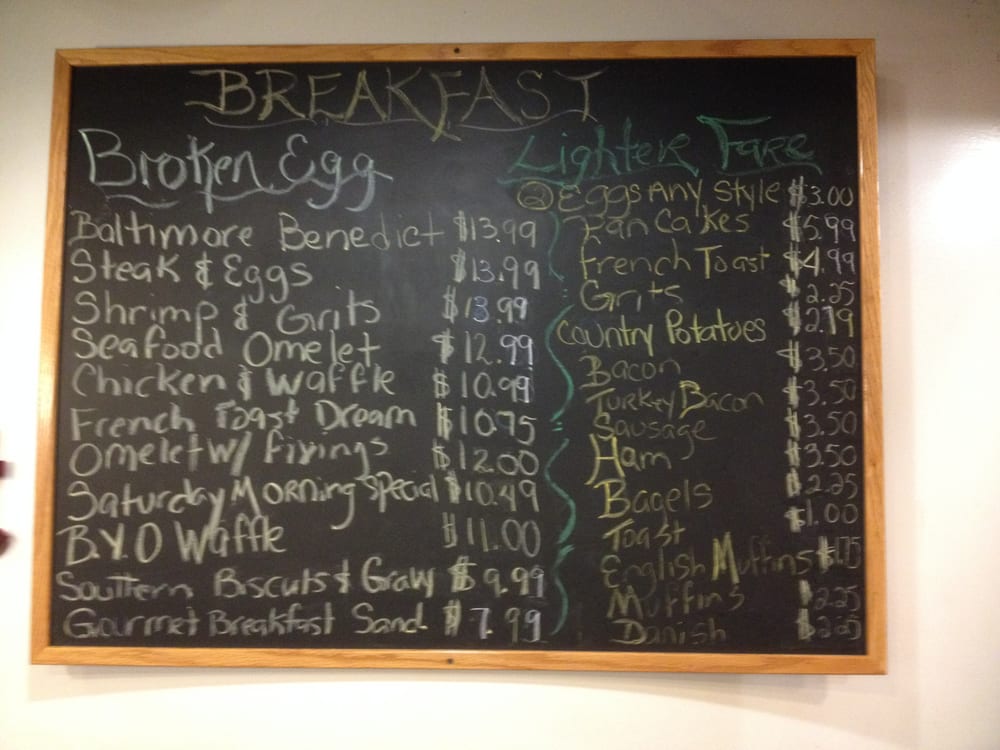 BREAKFAST
Broken Egg
Baltimore Benedict $13.99
Steak & Eggs $13.99
Shrimp & Grits $13.99
Seafood Omelet $12.99
Chicken & Waffle $10.99
French Toast Dream $10.75
Omelet w/ fixings $12.00
Saturday Morning Special $10.49
B.Y.O Waffle $11.00
Southern Biscuts & Gravy $9.99
Gourmet Breakfast Sand. $7.99
Lighter Fare
② Eggs Any Style $3.00
Pan Cakes $5.99
French Toast $4.99
Grits $2.25
Country Potatoes $2.79
Bacon $3.50
Turkey Bacon $3.50
Sausage $3.50
Ham $3.50
Bagels $2.25
Toast $1.00
English Muffins $1.75
Muffins $2.25
Danish $2.25